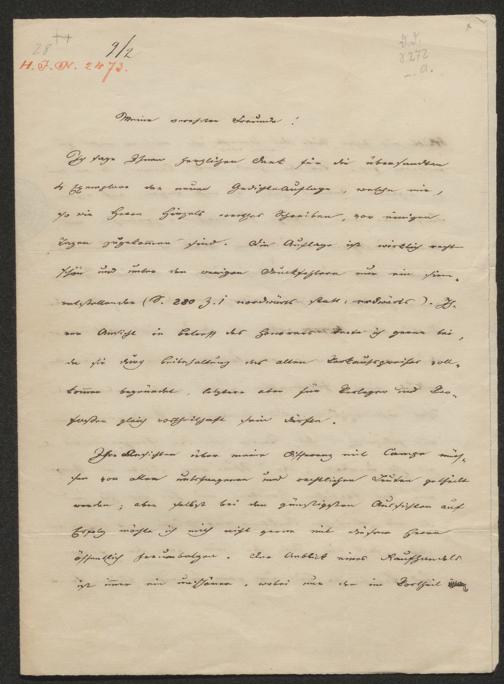 28 ++ 9/2
H. I. N. 2473.
Meine verehrten Freunde!
Ich sage Ihnen herzlichen Dank für die übersandten
6 Exemplare der neuen Gedichteauflage, welche mir,
so wie Herrn Hirzels werthes Schreiben, vor einigen
Tagen zugekommen sind. Die Auflage ist wirklich recht
schön und unter den wenigen Druckfehlern nur ein sinn-
entstellender (S. 280 Z. 1 nordwärts statt: erdwärts). Ih-
rer Ansicht in Betreff des Honorars trete ich gerne bei,
da sie durch Beibehaltung des alten Verkaufspreises voll-
kommen begründet, letztere aber für Verleger und Ver-
fasser gleich vortheilhaft sein dürfte.
Ihre Ansichten über meine Differenz mit Campe müs-
sen von allen unbefangenen und rechtlichen Leuten getheilt
werden; aber selbst bei den günstigsten Aussichten auf
Erfolg möchte ich mich nicht gerne mit diesem Herrn
öffentlich herumbalgen. Der Anblick eines Raufhandels
ist immer ein unschöner, wobei nur der im Vortheil